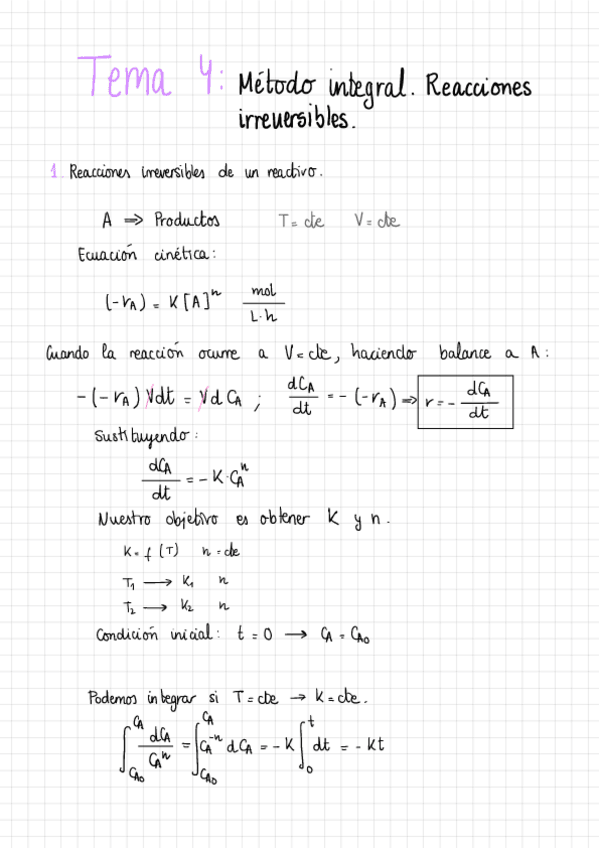 Tema 4: Método integral. Reacciones
irreversibles.
1. Reacciones irreversibles de un reactivo.
A ⇒ Productos T = cte V = cte
Ecuación cinética:
(-rA) = K [A]^n mol / L·h
Cuando la reacción ocurre a V = cte, haciendo balance a A:
-(-rA) Vdt = VdCA ; dCA/dt = -(-rA) ⇒ r = - dCA/dt
Sustituyendo:
dCA/dt = -K·CA^n
Nuestro objetivo es obtener K y n.
K = f(T) n = cte
T1 ⟶ K1 n
T2 ⟶ K2 n
Condición inicial: t = 0 ⟶ CA = CA0
Podemos integrar si T = cte → K = cte.
∫_CA0^CA dCA/CA^n = ∫_CA0^CA CA^-n dCA = -K ∫_0^t dt = -kt